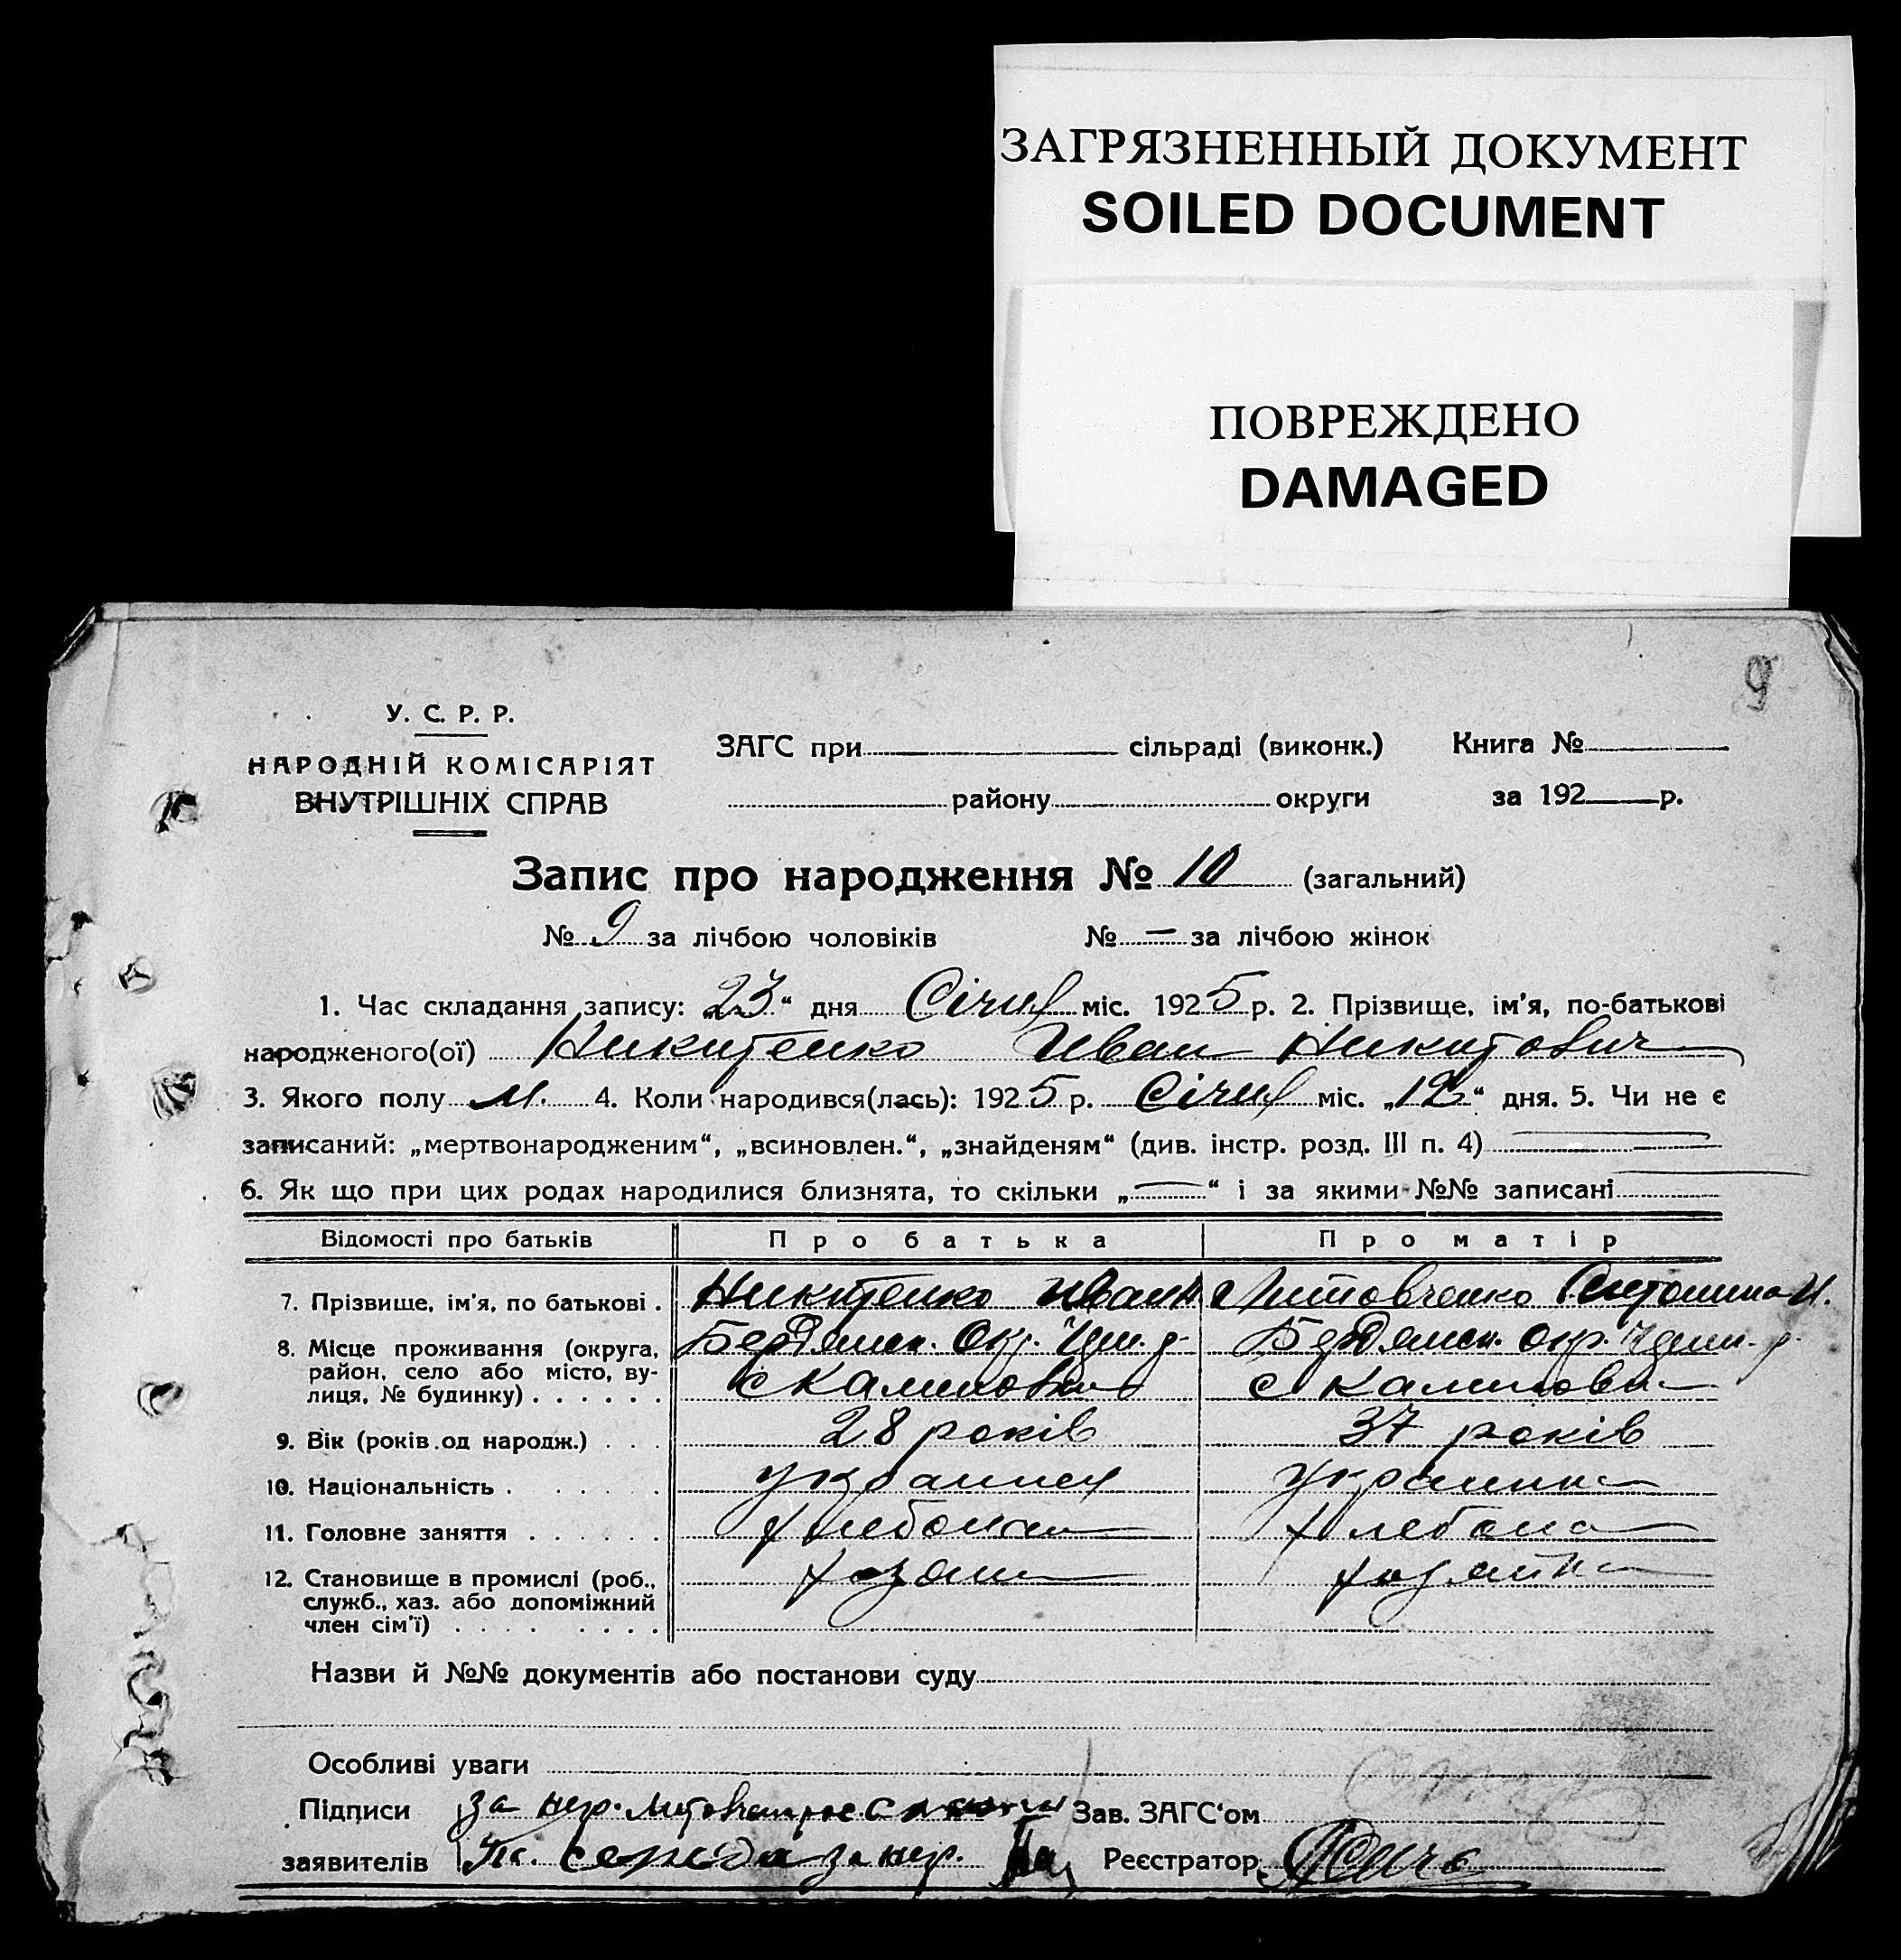 ЗАГРЯЗНЕННЫЙ ДОКУМЕНТ
SOILED DOCUMENT
ПОВРЕЖДЕНО
DAMAGED
9
У. С. Р. Р.
НАРОДНІЙ КОМІСАРІЯТ
ВНУТРІШНІХ СПРАВ
ЗАГС при сільраді (виконк.) Книга №
району округи за 192 р.
Запис про народження № 10 (загальний)
№ 9 за лічбою чоловіків № — за лічбою жінок
1. Час складання запису: „23“ дня Січня міс. 1925 р. 2. Прізвище, ім'я, по-батькові
народженого(ої) Никитенко Иван Никитович
3. Якого полу м. 4. Коли народився(лась): 1925 р. Січня міс. „12“ дня. 5. Чи не є
записаний: „мертвонародженим“, „всиновлен.“, „знайденям“ (див. інстр. розд. III п. 4) —
6. Як що при цих родах народилися близнята, то скільки „—“ і за якими №№ записані —
Відомості про батьків Про батька Про матір
7. Прізвище, ім'я, по батькові . Никитенко Иван Литовченко Антонина И.
8. Місце проживання (округа, Бердянск. Окр. Бердянск. Окр.
район, село або місто, ву-
лиця, № будинку) . . . . . . с Калиновка с Калиновка
9. Вік (років од народж.) . . . 28 років 37 років
10. Національність . . . . . . українец украинка
11. Головне заняття . . . . . . хлебопаш хлебопа
12. Становище в промислі (роб., хозяин хозяйка
служб., хаз. або допоміжний
член сім'ї) . . . . . . . .
Назви й №№ документів або постанови суду
Особливі уваги
Підписи за нер. Зав. ЗАГС'ом
заявителів Середа за нер. Реєстратор